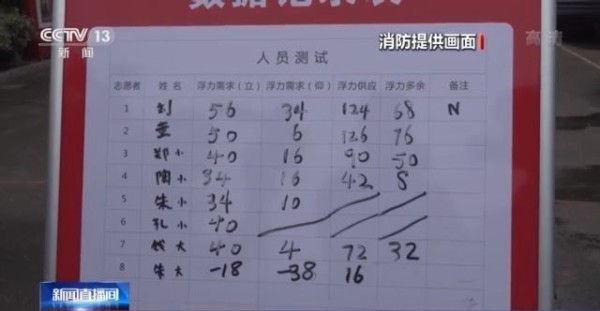 CCTV 13
新闻
数据记录表
高清
消防提供画面
人员测试
志愿者 姓名 浮力需求(立) 浮力需求(仰) 浮力供应 浮力多余 备注
1 刘 56 34 124 68 N
2 董 50 6 126 76
3 郑小 40 16 90 50
4 陶小 34 16 42 8
5 朱小 34 10
6 孔小 40
7 钱大 40 4 72 32
8 朱大 -18 -38 16
新闻直播间